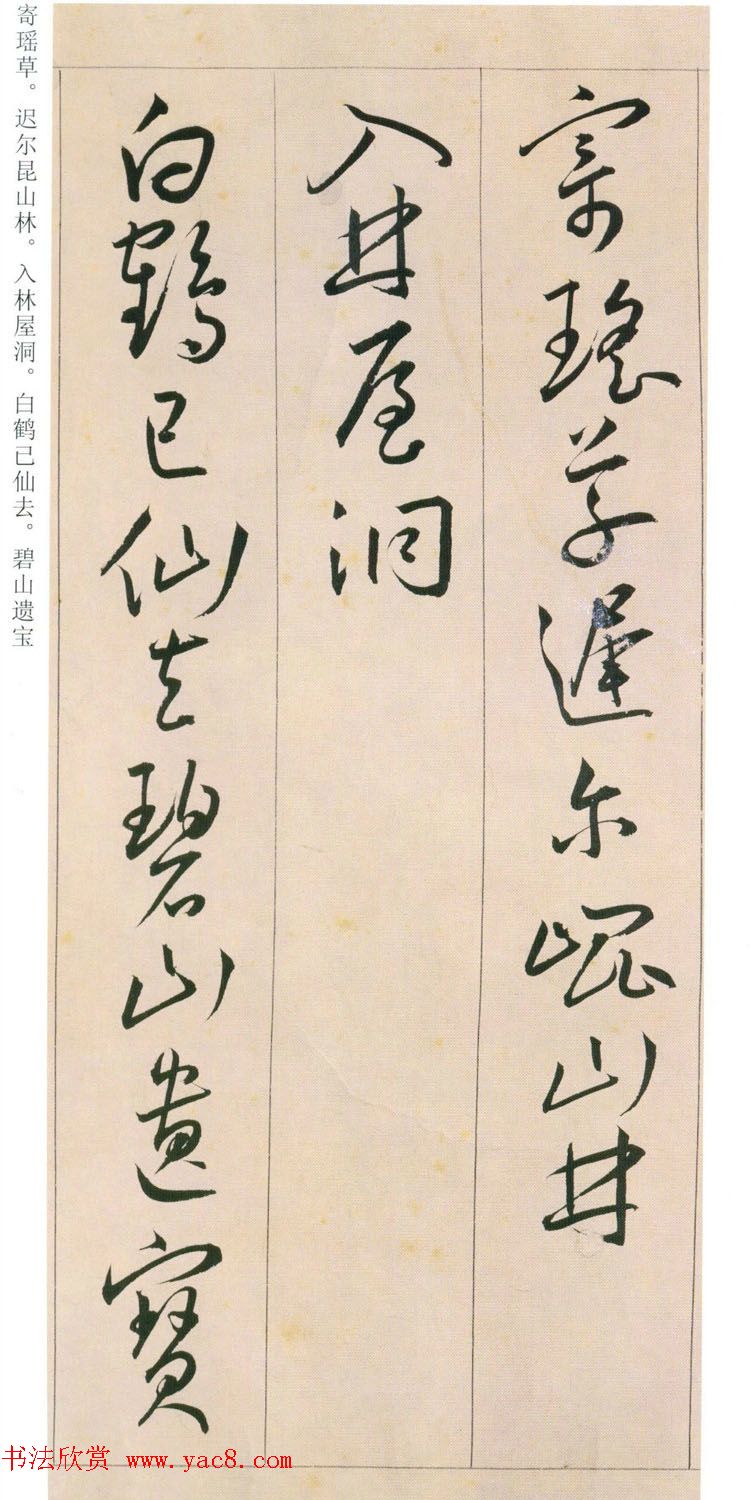 寄瑶草迟尔崐山林
入林屋洞
白鹤已仙去碧山遗寶
寄瑶草。迟尔昆山林。入林屋洞。白鹤已仙去。碧山遗宝
书法欣赏 www.yac8.com